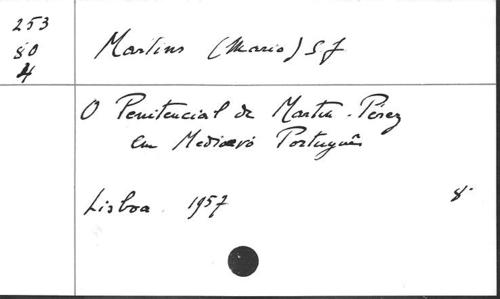 253
80
4
Martins (Mario) S J
O Penitencial de Martin Pérez
em Medioevo Português
Lisboa 1957
8º